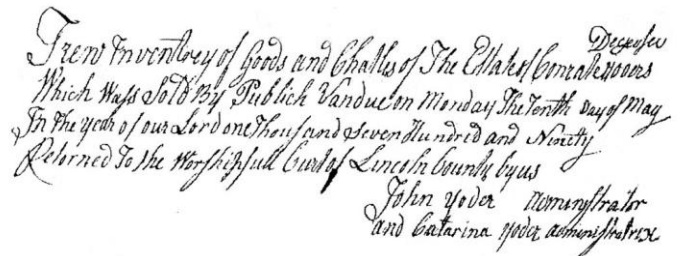 Deceased
Trew Inventrey of Goods and Chatles of The Estate of Conrate Yoders
Which Wass Sold By Publick Vandue on Monday The Tenth Day of May
In the year of our Lord one Thousand seven Hundred and Ninety
Retorned To the Worshipfull Curt of Lincoln County by us
John Yoder Administrator
and Catarina Yoder administratrix